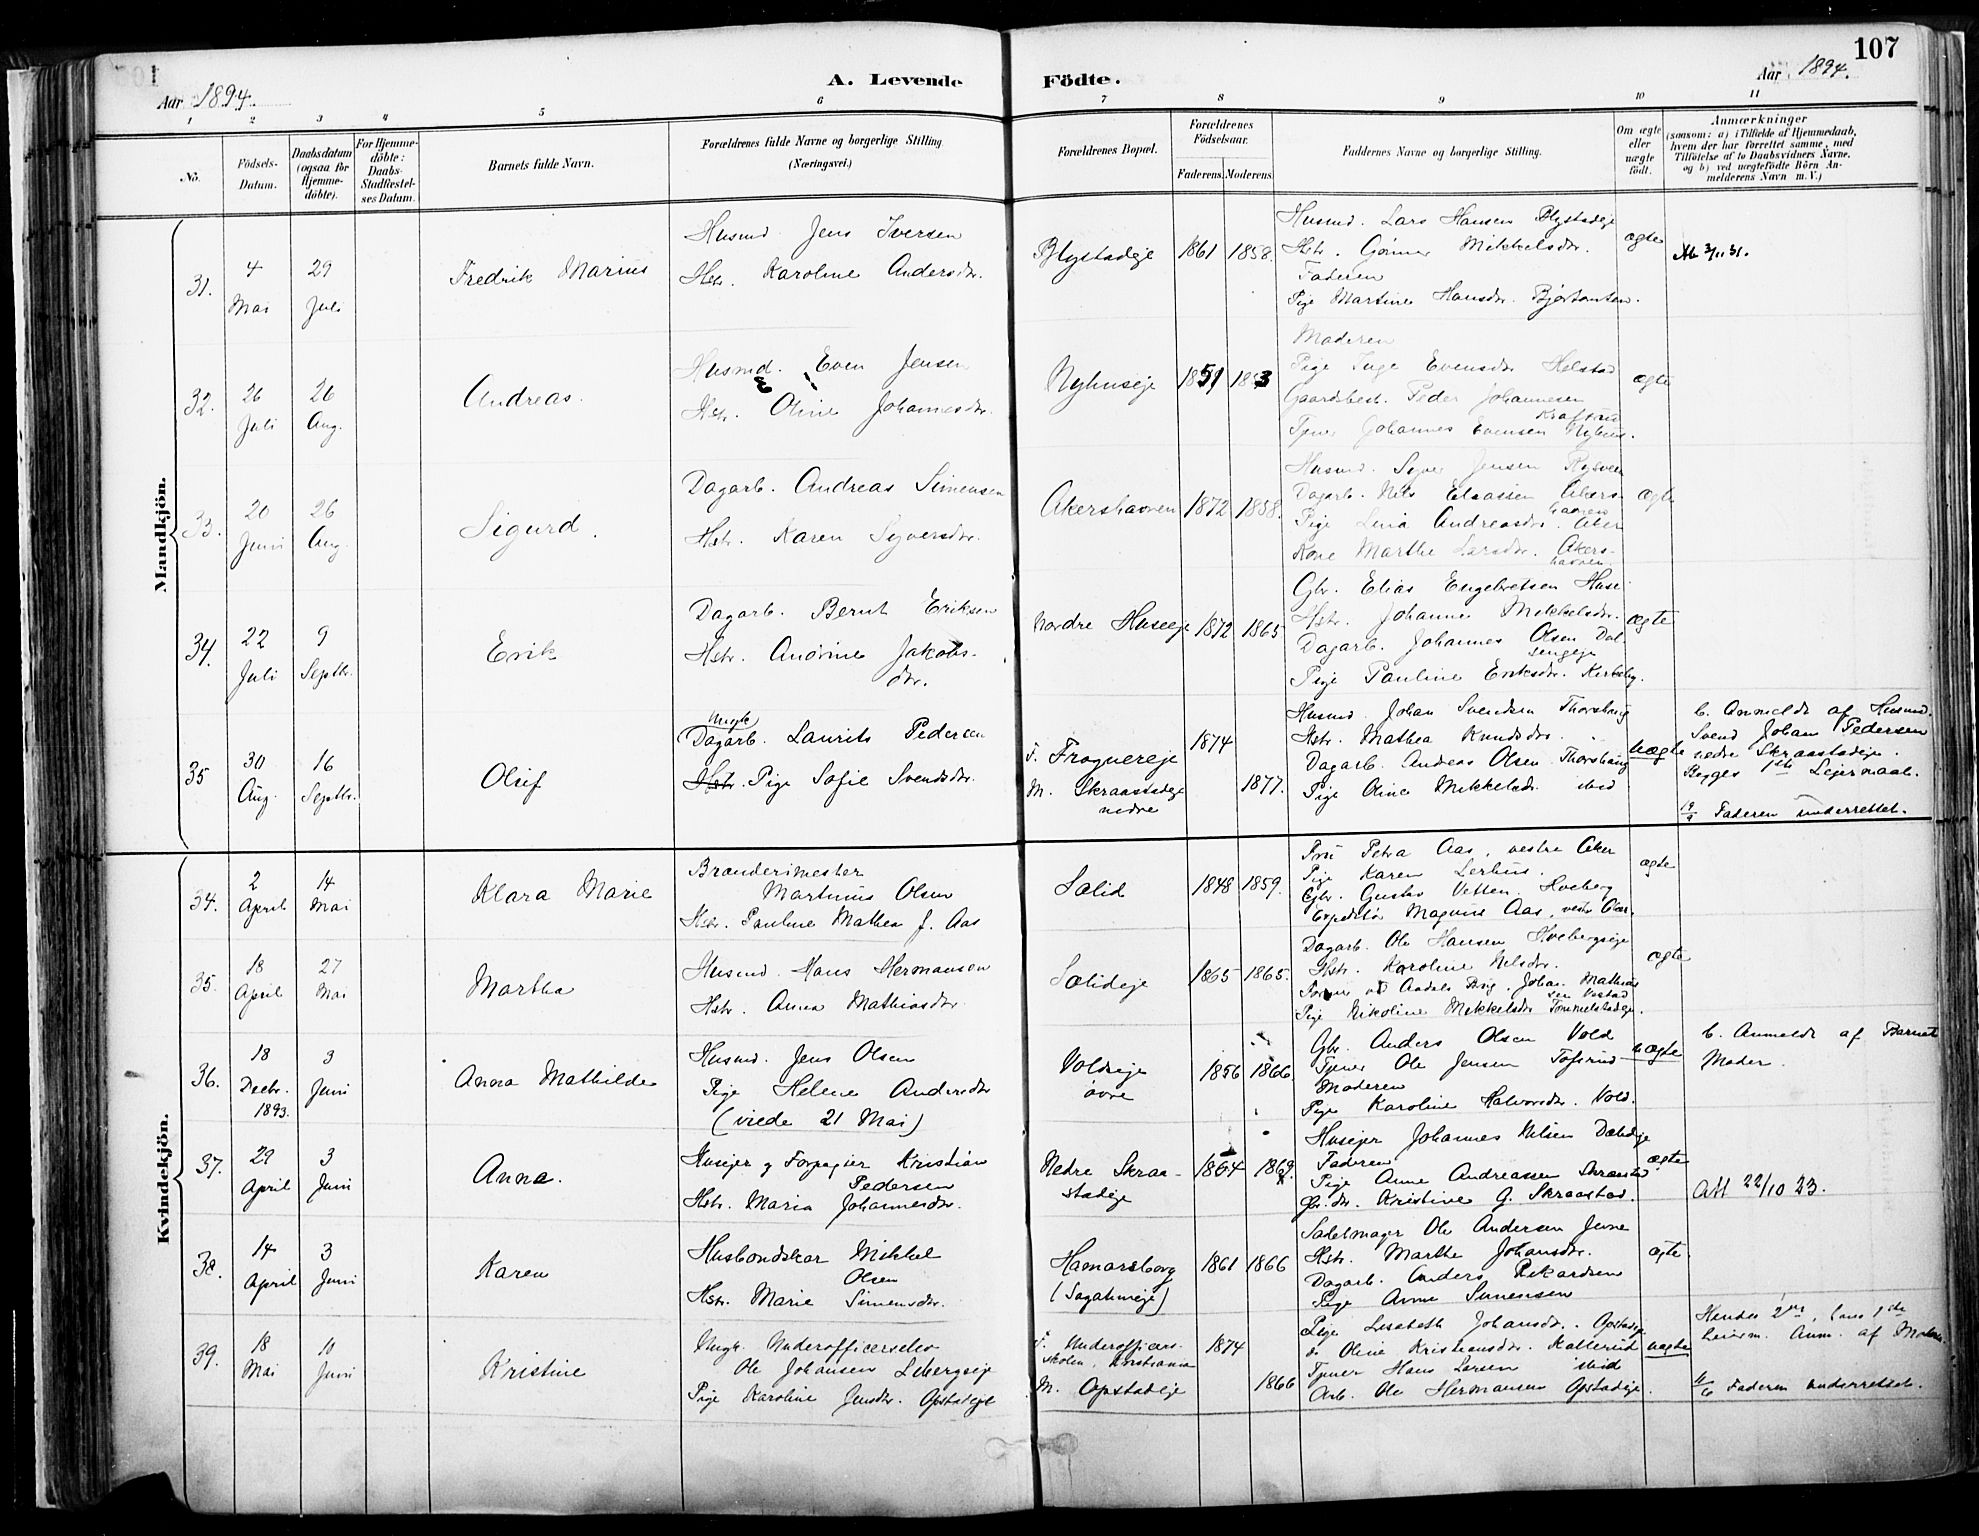 107
Aar 1894.
A. Levende Födte.
Aar 1894.
1 2 3 4 5 6 7 8 9 10 11
No.
Födsels-Datum.
Daabsdatum (ogsaa for Hjemme-döbte).
For Hjemme-döbte: Daabs-Stadfæstel-ses Datum.
Barnets fulde Navn.
Forældrenes fulde Navne og borgerlige Stilling (Næringsvei.)
Forældrenes Bopæl.
Forældrenes Födselsaar.
Faderens. Moderens.
Faddernes Navne og borgerlige Stilling.
Om ægte eller uægte födt.
Anmærkninger
(saasom: a) i Tilfælde af Hjemmedaab,
hvem der har forrettet samme, med
Tilföielse af to Daabsvidners Navne,
og b) ved uægtefödte Börn An-
melderens Navn m. V.)
Mandkjön.
31. 4 Mai 29 Juli Fredrik Marius
Husmd. Jens Iversen
Hstr. Karoline Andersdr.
Blystadeje 1861 1858.
Husmd. Lars Hansen Blystadeje
Hstr. Gunner Mikkelsdr.
Faderen
Pige Martine Hansdr.
ægte
32. 26 Juli 26 Aug. Andreas.
Husmd. Even Jensen
Hstr. Oline Johannesdr.
Nyhuseje 1851
Moderen
Pige Inge Evensdr. Helstad
Gaardbest. Peder Johannesen
Kraftrud
Tjener Johannes Evensen Nyhus.
ægte
33. 20 Juni 26 Aug. Sigurd.
Dagarb. Andreas Simensen
Hstr. Karen Syversdr.
Akershavnen 1872 1858.
Husmd. Syver Jensen
Dagarb. Nils Eliassen Akers-
havnen
Pige Lina Andreasdr. Aker
Kone Marthe Larsdr. Akers-
havnen.
ægte
34. 22 Juli 9 Septbr. Erik
Dagarb. Bernt Eriksen
Hstr. Andrine Jakobs-
dr.
Nordre Huseeje 1872 1865
Gbr. Elias Engebretsen Huse
Hstr. Johanne Mikkelsdr.
Dagarb. Johannes Olsen Dal
sengeje
Pige Pauline Eriksdr. Kirkeby.
ægte
35 30 Aug. 16 Septbr. Oluf
Ungk.
Dagarb. Laurits Pedersen
Hstr. Pige Sofie Svendsdr.
F. Frognereje 1874
M. Skraastadeje 1877.
nedre
Husmd. Johan Svendsen Thorshaug
Hstr. Mathea Knudsdr. "
Dagarb. Andreas Olsen Thorshaug
Pige Oline Mikkelsdr. ibid
uægte
b. Anmeldt af Husmd.
Svend Johan Pedersen
nedre Skraastadeje.
Begges 1ste Lejermaal.
19/9 Faderen underrettet.
Kvindekjön.
34. 2 April 14 Mai Klara Marie
Brænderimester
Martinius Olsen
Hstr. Pauline Mathea f. Aas
Sælid 1848 1859.
Fru Petra Aas, vestre Aker
Pige Karen Lerhus.
Gbr. Gustav Vetten. Hveberg
Expeditør Magnus Aas, vestr Aker.
ægte
35. 18 April 27 Mai Martha
Husmd. Hans Hermansen
Hstr. Anna Mathiasdr.
Sælideje 1865 1865.
Dagarb. Ole Hansen Hvebergseje
Hstr. Karoline Nilsdr.
Johan Mathias
sen
Pige Nikoline Mikkelsdr Tommelstadeje.
ægte
36. 18 Decbr. 1893. 3 Juni Anna Mathilde
Husmd. Jens Olsen
Pige Helene Andersdr
(viede 21 Mai)
Voldseje 1856 1866.
øvre
Gbr. Anders Olsen Vold
Tjener Ole Jensen
Moderen
Pige Karoline Halvorsdr. Vold.
uægte
b. Anmeldt af Barnets
Moder.
37. 29 April 3 Juni Anna.
Husejer og Forpagter Kristian
Pedersen
Hstr. Maria Johannesdr.
Nedre Skraa-
stadeje
1864
Husejer Johannes Nilsen Dæliseje
Faderen
Pige Anne Andreassen Skraastad
Gbr.dtr. Kristine G. Skraastad.
ægte
Att 22/10 23.
38. 14 April 3 Juni Karen
Husbondskar Mikkel
Olsen
Hstr. Marie Simensdr.
Hamarsborg 1861 1866
(Sagatuneje)
Sadelmager Ole Andersen Jevne
Hstr. Marthe Johansdr.
Dagarb. Anders Rikardsen
Pige Anne Simensen
ægte
39. 18 Mai 10 Juni Kristine
Ungk. Underofficerselev
Ole Johansen Libergseje
Pige Karoline Jensdr. Opstadeje
F. Underofficers- 1874
skolen, Kristiania
M. Opstadeje 1866
Pige Lisabeth Johansdr. Opstadeje
do Oline Kristiansdr. Kallerud
Tjener Hans Larsen ibid
Arb. Ole Hermansen Opstadeje.
uægte
Hendes 2det, hans 1ste
Leierm. Anm. af Moderen
Faderen underrettet.